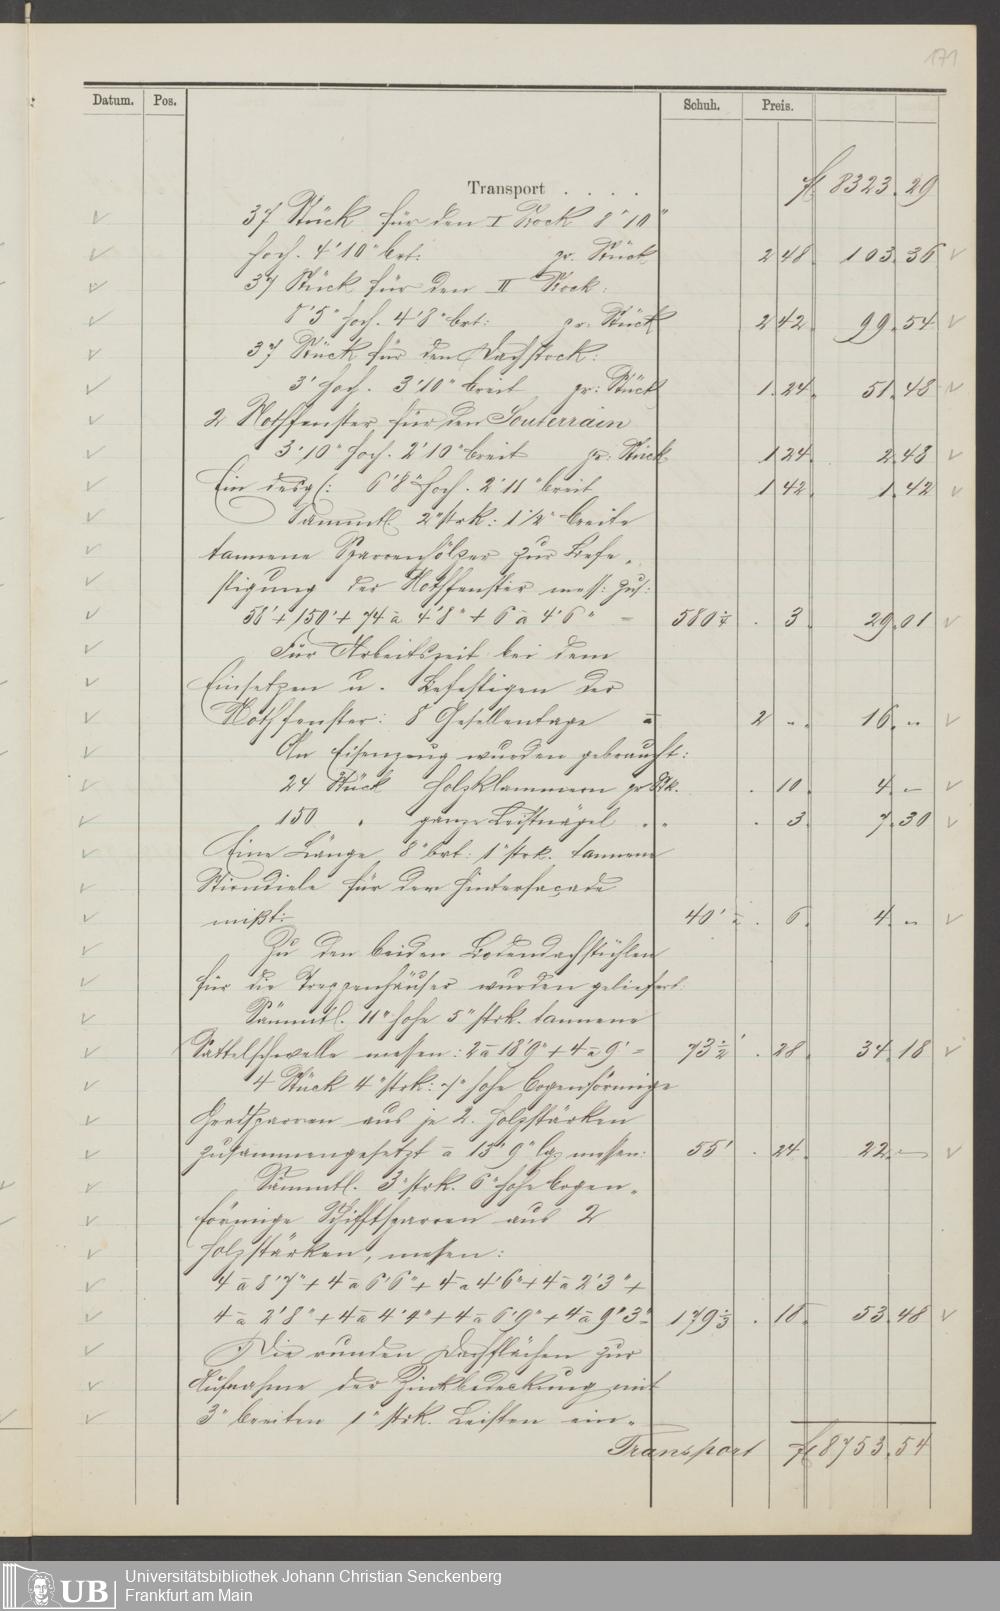 171
Datum. Pos. Schuh. Preis.
Transport . . . . fl 8323. 29
37 Stück für den I Stock 8'10"
hoch. 4'10" brt: pr. Stück 2 48. 103. 36
37 Stück für den II Stock:
8'5" hoch. 4'8" brt: pr: Stück 2 42. 99. 54
37 Stück für den Dachstock:
3' hoch. 3'10" breit pr: Stück 1. 24. 51. 48
2 Nothfenster für den Souterrain
3'10" hoch. 2'10" breit pr: Stück 1 24. 2. 48
Ein desgl: 6'8" hoch. 2'11" breit 1 42. 1. 42
Sämmtl 2" strk: 1 1/2" breite
tannene Sparrenhölzer zur Befe-
stigung der Nothfenster mess: zus:
58' + 150' + 74 à 4'8" + 6 à 4'6" = 580 1/4 . 3. 29. 01
Für Arbeitszeit bei dem
Einsetzen u. Befestigen der
Nothfenster: 8 Gesellentage à 2 „. 16. „
An Eisenzeug wurden gebraucht:
24 Stück Holzklammern pr Stk. . 10. 4. –
150 " ganze Leistnägel " " . 3. 7. 30
Eine Länge 8" brt: 1" strk. tannene
Stirndiele für der Hinterfaçade
mißt: 40' à . 6. 4. „
Zu den beiden Bodendachstühlen
für die Treppenhäuser wurden geliefert:
Sämmtl. 11" hohe 5" strk. tannene
Sattelschwelle messen: 2 à 18'9" + 4 à 9' = 73 1/2' . 28. 34. 18
4 Stück 4" strk: 7" hohe bogenförmige
Gradsparren aus je 2. Holzstärken
zusammengesetzt à 13'9" lg messen: 55' . 24. 22. –
Sämmtl. 3" strk. 6" hohe bogen-
förmige Schifftsparren aus 2
Holzstärken, messen:
4 à 8'7" + 4 à 6'6" + 4 à 4'6" + 4 à 2'3" +
4 à 2'8" + 4 à 4'4" + 4 à 6'9" + 4 à 9'3" = 179 1/3 . 18. 53. 48
Die runden Dachflächen zur
Aufnahme der Zinkbedeckung mit
3" breiten 1" strk. Leisten ein-
Transport fl 8753. 54
UB
Universitätsbibliothek Johann Christian Senckenberg
Frankfurt am Main